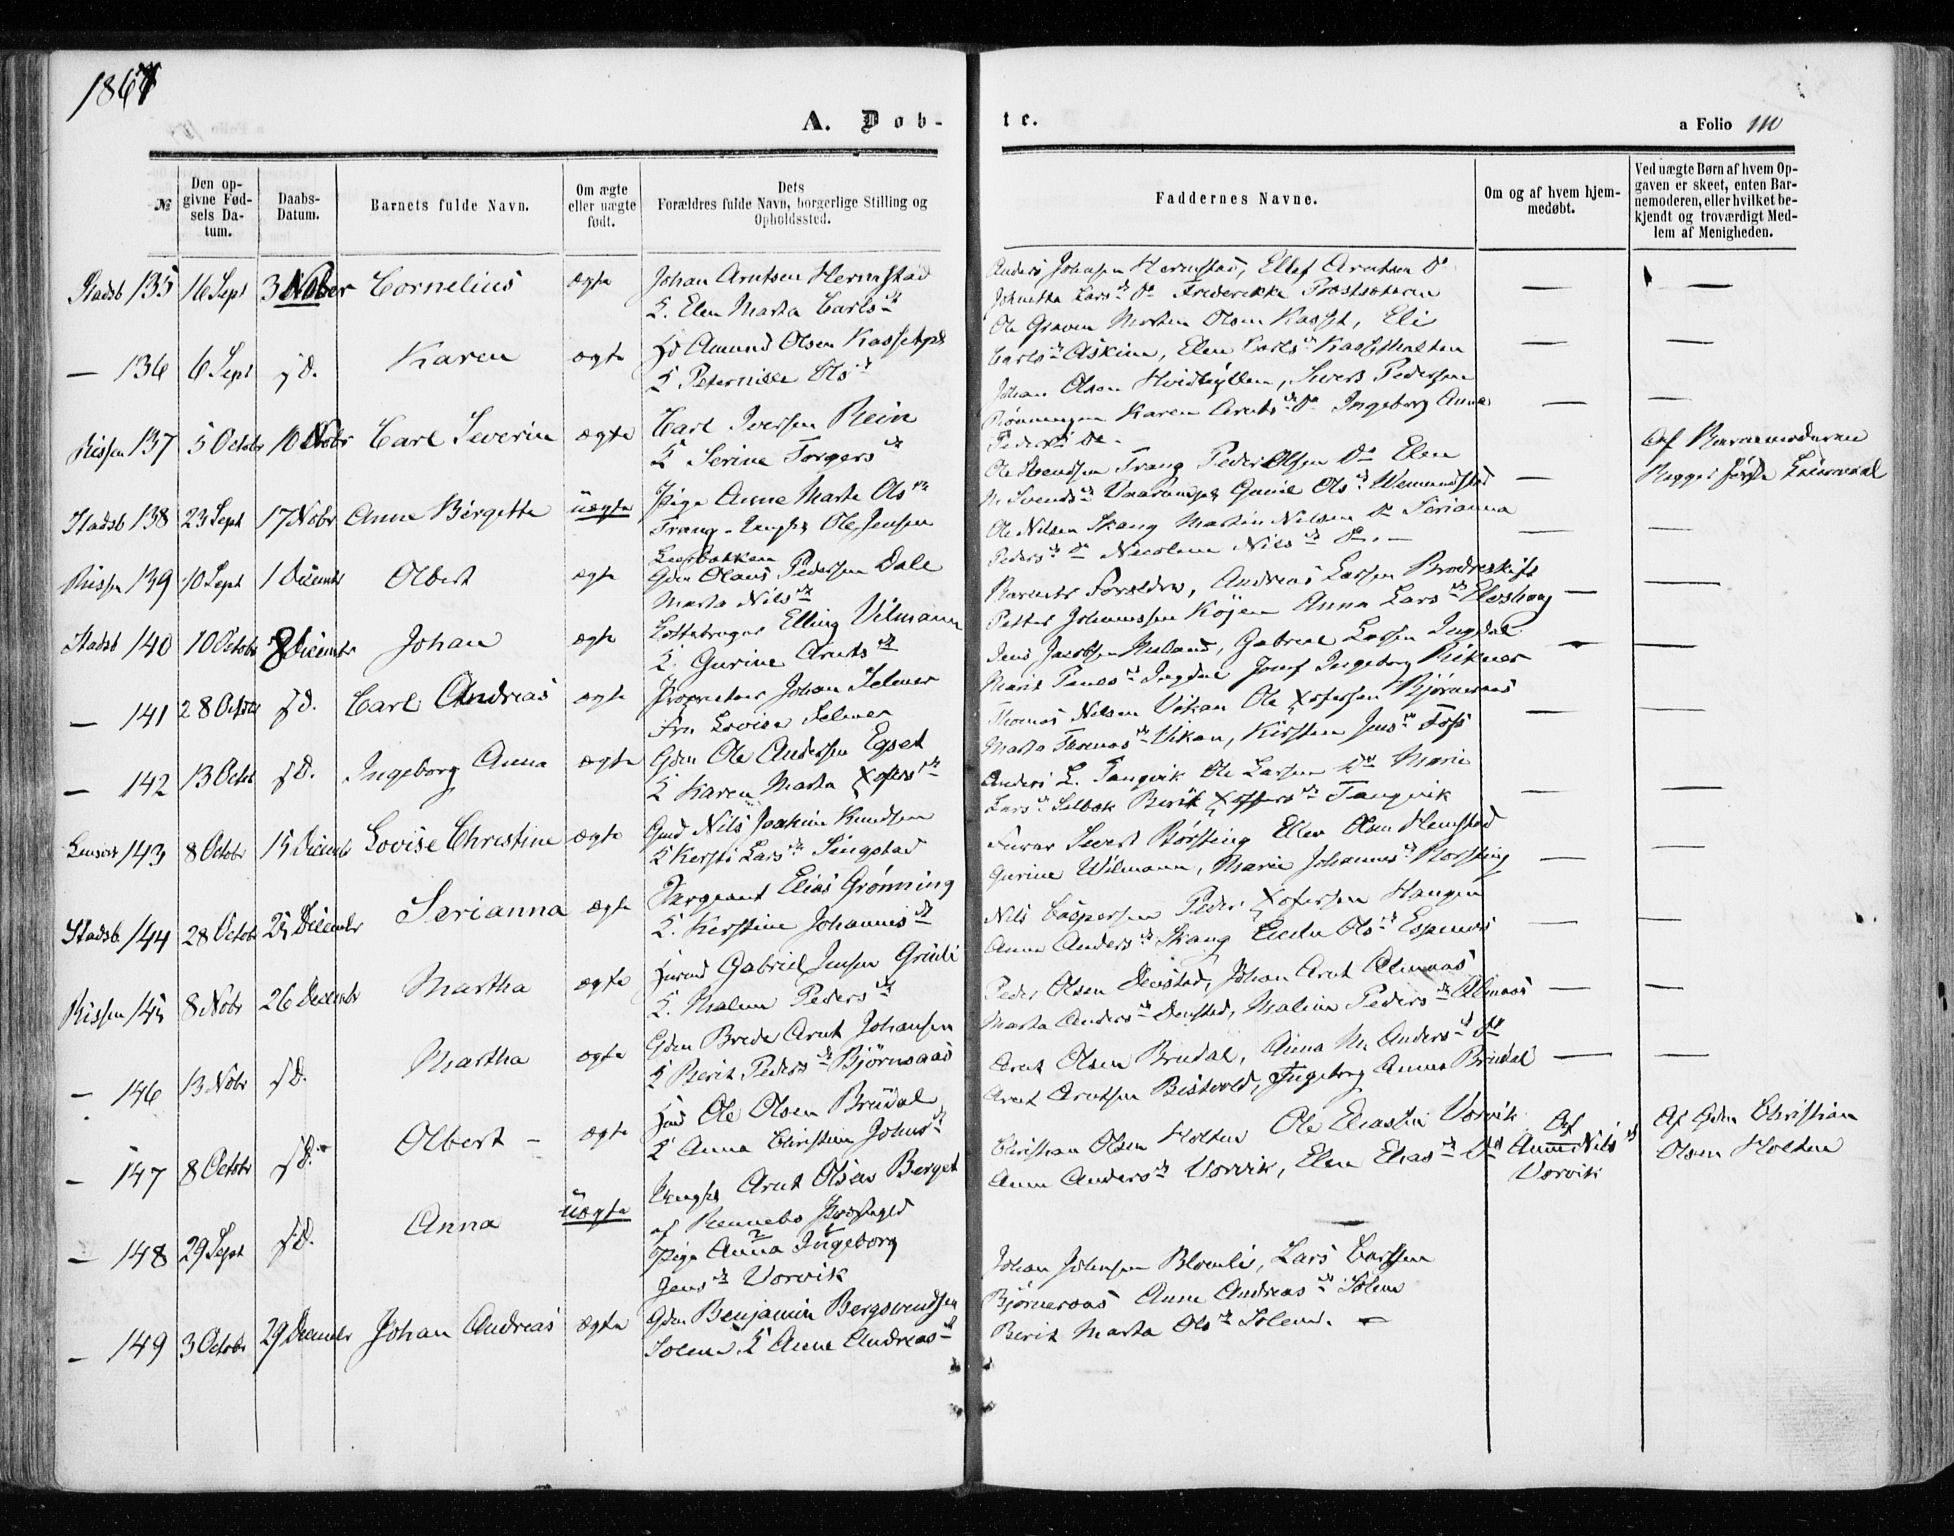 1867
A. Døb-
te.
a Folio 110
№
Den opgivne Fødsels Datum.
Daabs-Datum.
Barnets fulde Navn.
Om ægte eller uægte født.
Dets Forældres fulde Navn, borgerlige Stilling og Opholdssted.
Faddernes Navne.
Om og af hvem hjemmedøbt.
Ved uægte Børn af hvem Opgaven er skeet, enten Barnemoderen, eller hvilket bekjendt og troværdigt Medlem af Menigheden.
Stadsb 135 16 Sept 3 Nober Cornelius ægte Johan Arntsen Hermstad
K. Elen Marta Carlsd
Anders Johnsen Hermstad, Ellef Arntsen Do
Johnetta Larsd Do Frederikke Præstsæteren
— 136 6 Sept s d. Karen ægte Amund Olsen
K Peternille Olsd
Ole Graven Morten Olsen Kasset, Eli
Carlsd Askim, Elen Carlsd
Rissen 137 5 Octobr 10 Nobr Carl Severin ægte Carl Iversen Rein
K Serine Torgersd
Johan Olsen Hvidthyllen, Sivert Pedersen
Rønningen Karen Arntsd Do Ingeborg Anne
Pedersd Do
Stadsb 138 23 Sept 17 Nobr Anne Birgette uægte Pige Anne Marta Olsd
Trang. Ungk Ole Jensen
Ole Svendsen Trang Peder Olsen Do Elen
M. Svendsd Gurie Olsd Wemundstad
Af Barnemoderen
Begges første Leiermaal
Rissen 139 10 Sept 1 Decembr Olbert ægte Gdm Olaus Pedersen Dale
Marta Nilsd
Ole Nilsen Skang Martin Nilsen Do Serianna
Pedersd Do Nicoline Nilsd Do. —
Stadsb 140 10 Octobr 8 Decembr Johan ægte Elling Vilmann
K. Gurine Arntsd
Barnets Forældre, Andreas Larsen Brodreskift
Petter Johannesen Køjen Anna Larsd
— 141 28 Octobr s d. Carl Andreas ægte Proprietær Johan Selmer
Fru Lovise Selmer
Jens Jacobsen Meland, Gabriel Larsen Ingdal
Marit Ingdal Josef Ingeborg
— 142 13 Octbr s d. Ingeborg Anna ægte Gdm Ole Andersen Egset
K Karen Marta Xofersd
Thomas Nilsen Vikan Ole Xofersen Bjørneraas
Marta Thomasd Vikan, Kirsten Jensd Foss
143 8 Octobr 15 Decembr Lovise Christine ægte Nils Joakim Knudsen
K Kersti Larsd Singstad
Anders L. Tangvik Ole Larsen Do Marie
Larsd Selbæk Berit Xoffersd Tangvik
Stadsb. 144 28 Octobr 25 Decembr Serianna ægte Sergeant Elias Grønning
K. Kerstine Johannesd
Furer Sivert Børsting Ellev Olsen Hemstad
Gurine Wilmann, Marie Johannesd Børsting
Rissen 145 8 Nobr 26 Decembr Martha ægte Gabriel Jensen Grønli
K. Malene Pedersd
Nils Caspersen Peder Xofersen Haugen
Anne Andersd Skang Olsd
— 146 13 Nobr s d. Martha ægte Gdm Brede Arnt Johansen
K Berit Pedersd Bjørnaaas
Peder Olsen Denstad, Johan Arnt Almaas
Marta Andersd Denstad, Maline Pedersd Almaas
— 147 8 Octobr s d. Olbert ægte Ole Olsen Brudal
K Anna Christine Johnsd
Arnt Olsen Brudal, Anna M. Andersd Do
Arnt Arntsen Bistvold, Ingeborg Anna Brudal
— 148 29 Sept s d. Anna uægte Ungk Arnt Olsen Berget
af Rennebo Præstegjd
Pige Anna Ingeborg
Jensd Vorvik
Christian Olsen Holten Ole Eliassen Vorvik
Anne Andersd Vorvik, Elen Eliasd Do
Af Anne Nilsd Vorvik
Af Gdm Christian Olsen Holten
— 149 3 Octobr 29 Decembr Johan Andreas ægte Gdm Benjamin Bergsvendsen
Solem. K Anne Andreasd
Johan Johnsen Blomli, Lars Larssen
Bjørneraas Anne Andreasd Solem
Berit Marta Olsd Solem.